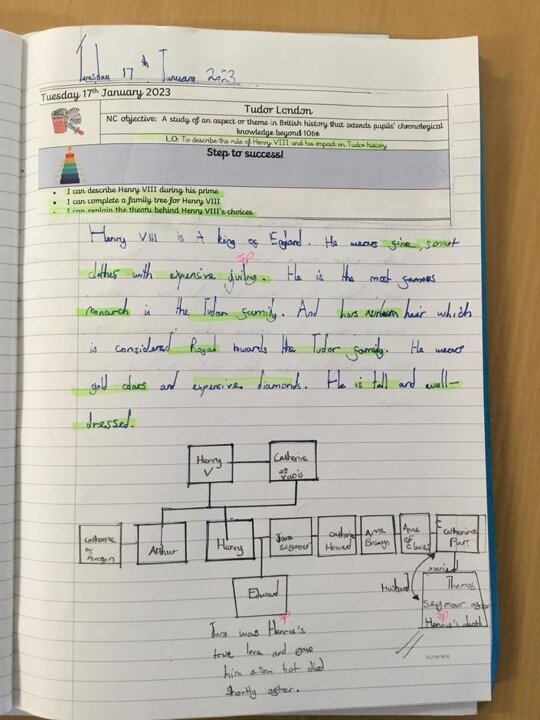 Tuesday 17th January 2023
Tuesday 17th January 2023
Tudor London
NC objective: A study of an aspect or theme in British history that extends pupils' chronological
knowledge beyond 1066
L.O: To describe the rule of Henry VIII and his impact on Tudor history
Step to success!
• I can describe Henry VIII during his prime
• I can complete a family tree for Henry VIII
• I can explain the theory behind Henry VIII's choices
Henry VIII is A king of England. He wears fine, smart
sp
clothes with expensive
He is the most famous
monarch in the Tudor family. And has hair which
is considered Royal towards the Tudor family. He wears
gold and expensive diamonds. He is tall and well-
dressed.
Henry
V
Catherine
of
Catherine
of Aragon
Arthur
Henry
Jane
Seymour
Catherine
Howard
Anne
Boleyn
Anne
of Cleves
Catherine
Parr
married
Husband
Thomas
Seymour after
sp
Henrie's death
Edward
sp
Jane was Henrie's
true love and gave
him a son but died
shortly after.